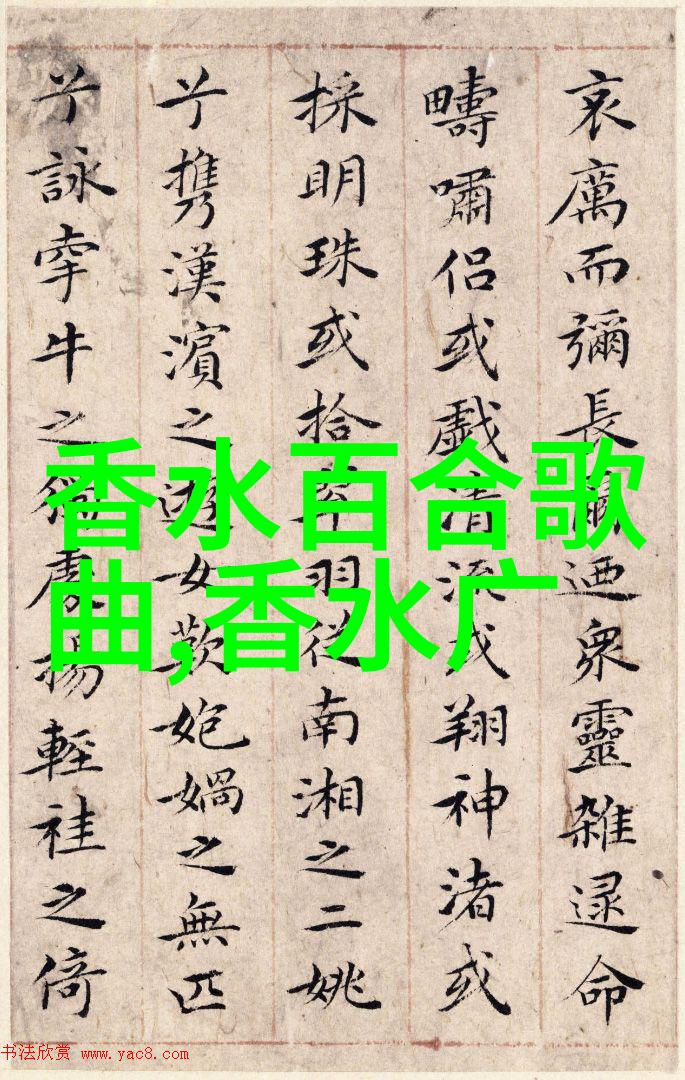 哀厲而彌長爾迺衆靈雜遝命
疇嘯侣或戲清流或翔神渚或
採明珠或拾翠羽從南湘之二姚
兮携漢濱之遊女歎媧之無匹
兮詠牽牛之獨處揚輕袿之倚
香水百合歌
曲,香水广
书法欣赏 www.yac8.com